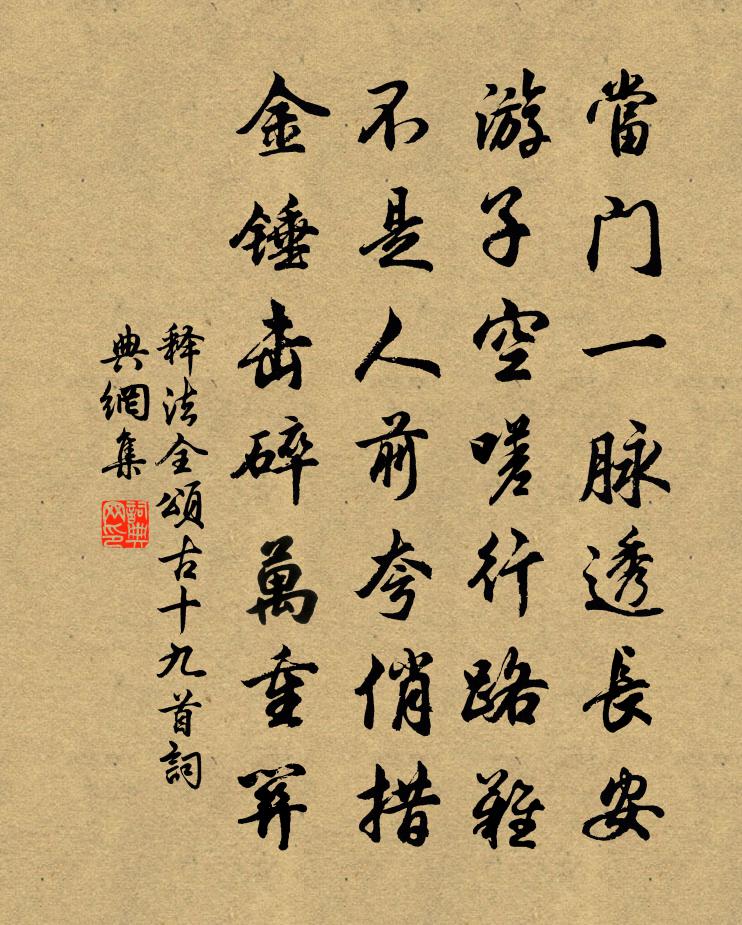 當門一脉透長安
游子空嗟行路難
不是人前夸俏措
金錘击碎萬重關
释法全頌古十九首詞
典網集
詞典
网印